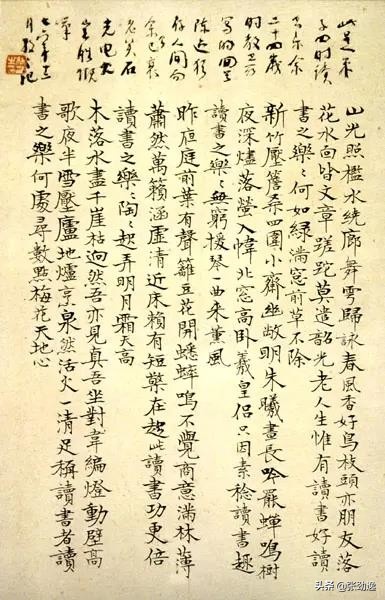 此是朱
子四时读
书乐余
二十四歲
时教
寫的四
陈迹猶
存人间
余已衰
老矣石
光电火
豈勝慨
山光照檻水繞廊舞雩歸詠春風香好鳥枝頭亦朋友落
花水面皆文章蹉跎莫遣韶光老人生惟有讀書好讀
書之樂〻何如綠滿窗前草不除
新竹壓簷桑四圍小齋幽敞明朱曦晝長吟罷蟬鳴樹
夜深燼落螢入幃北窗高卧羲皇侶只因素稔讀書趣
讀書之樂〻無窮援琴一曲來薰風
昨夜庭前葉有聲籬豆花開蟋蟀鳴不覺商意滿林薄
蕭然萬籟涵虛清近床賴有短檠在趁此讀書功更倍
讀書之樂〻陶〻起弄明月霜天高
木落水盡千崖枯迥然吾亦見真吾坐對韋編燈動壁高
歌夜半雪壓廬地爐烹泉然活火一清足稱讀書者讀
書之樂何處尋數點梅花天地心
头条 @张劲逸